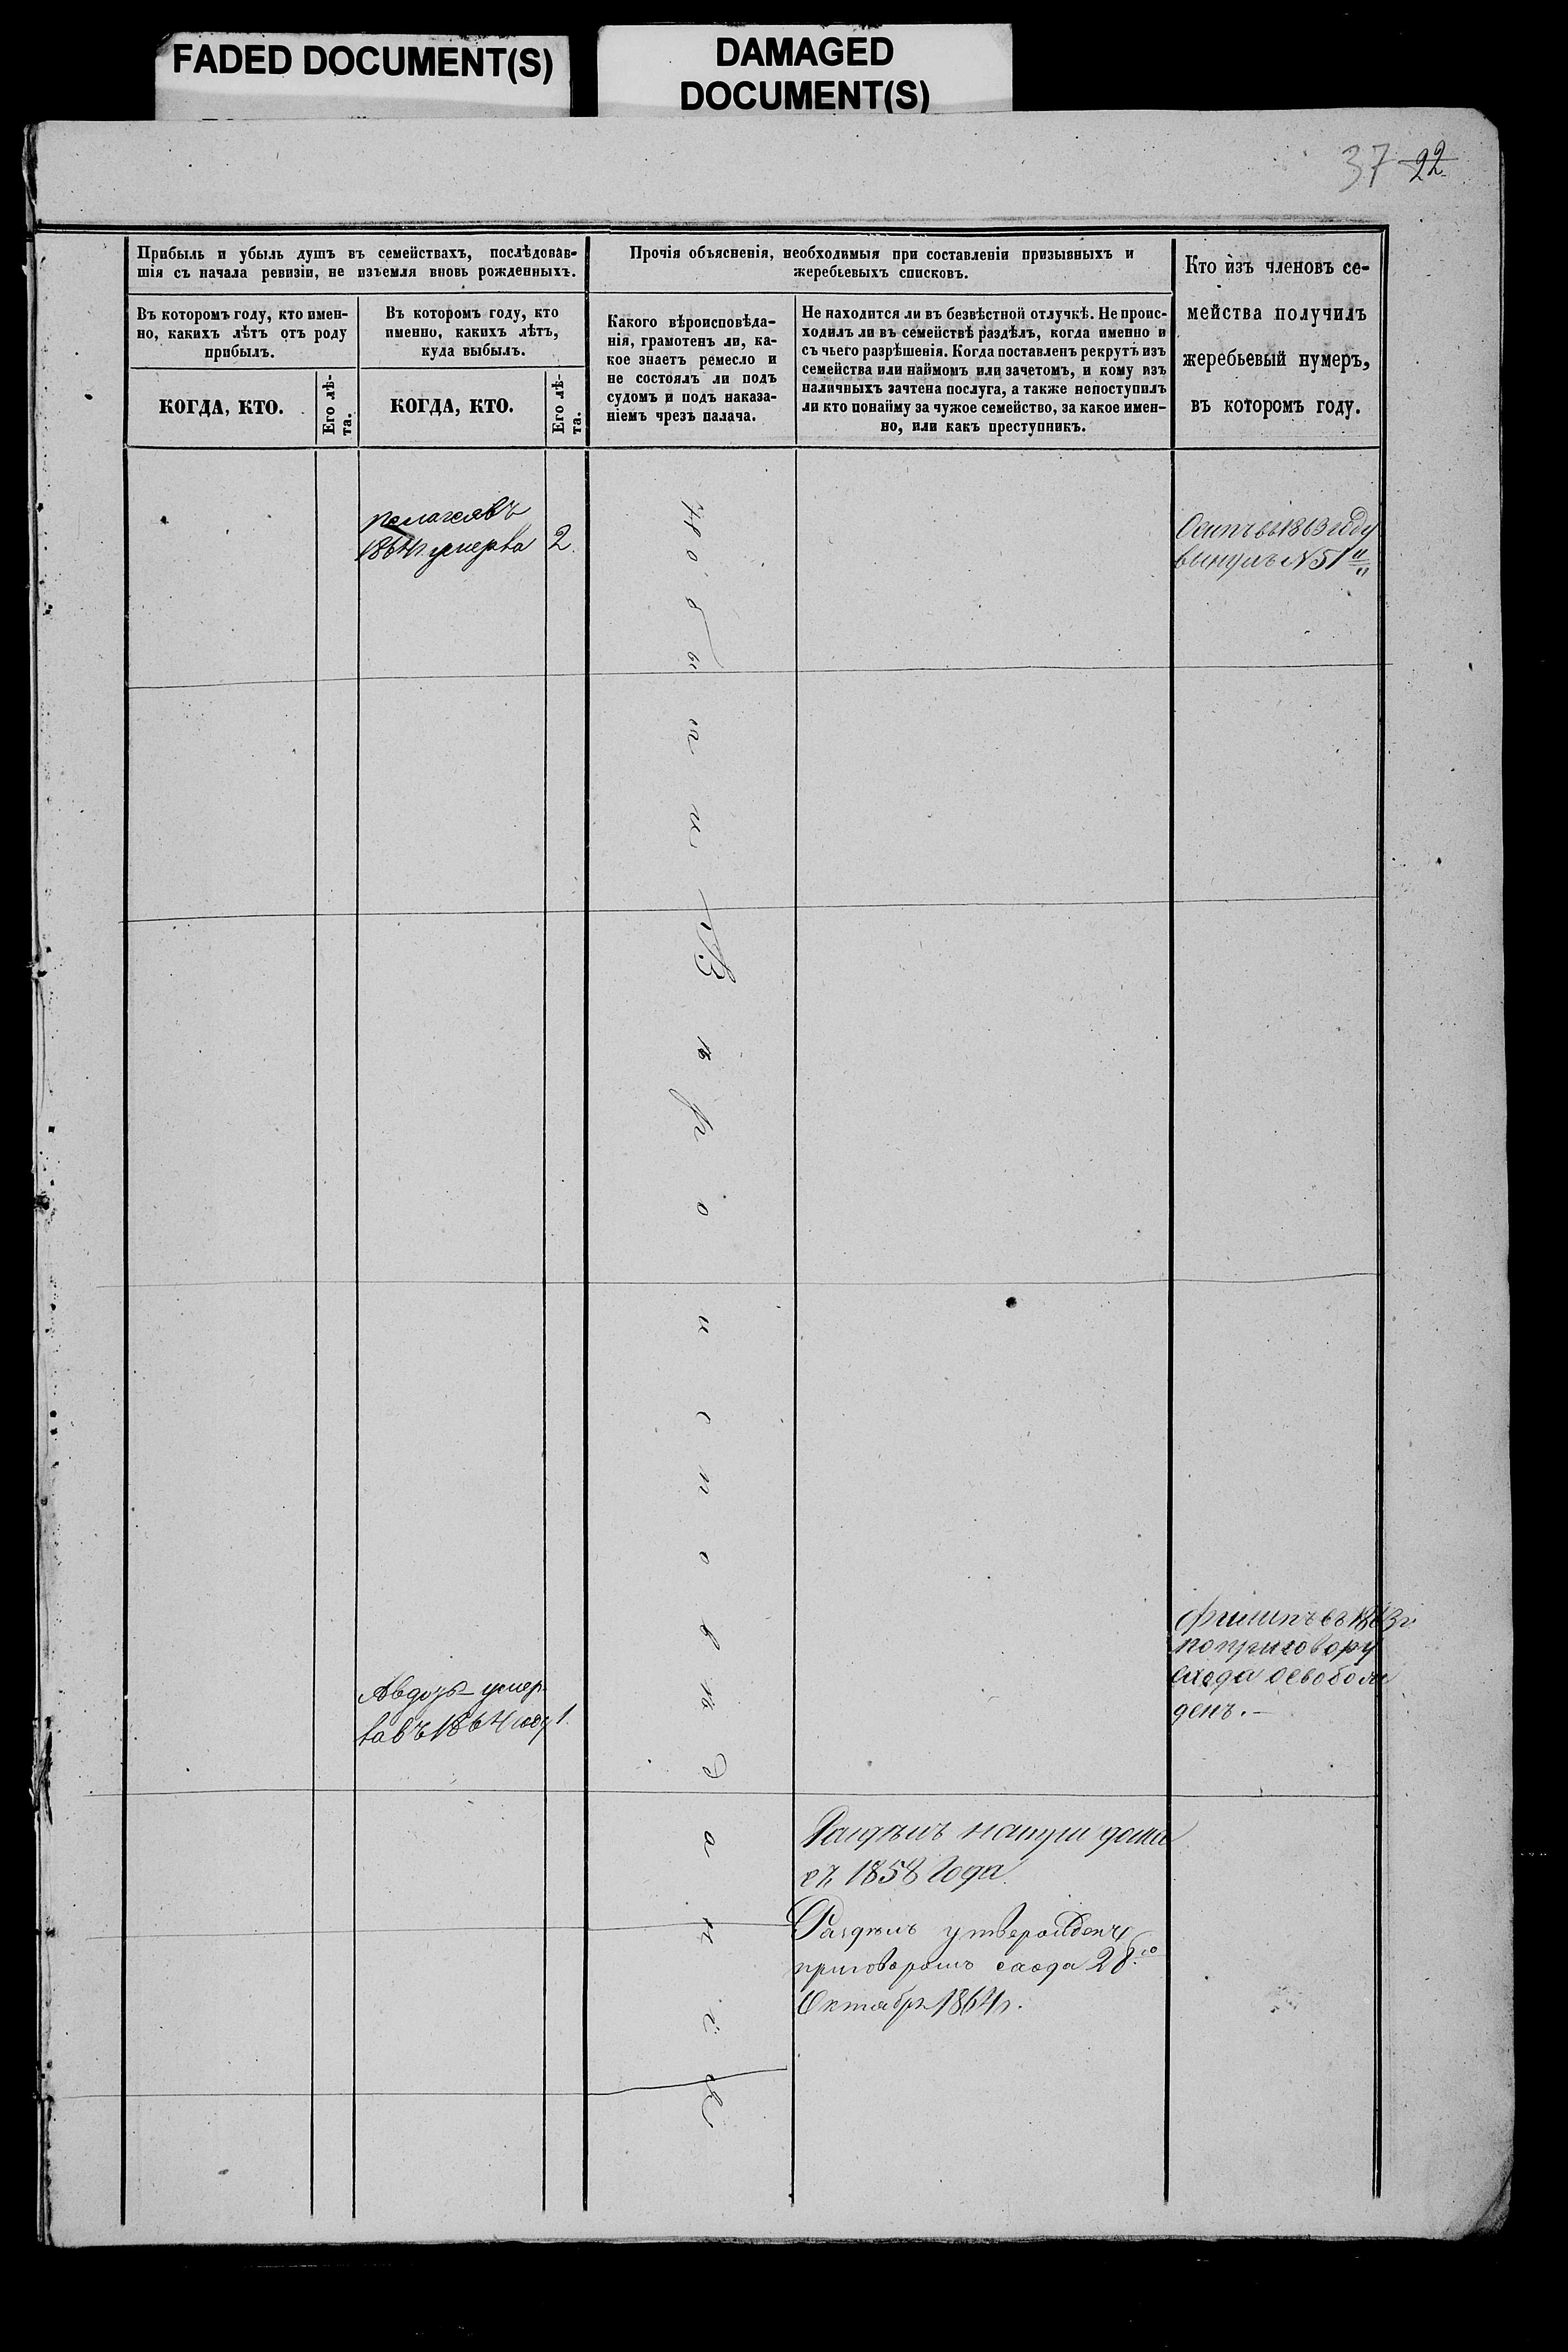 FADED DOCUMENT(S)
DAMAGED
DOCUMENT(S)
37 22
Прибыль и убыль душъ въ семействахъ, послѣдовав-
шія съ начала ревизіи, не изъемля вновь рожденныхъ.
Въ которомъ году, кто имен-
но, какихъ лѣтъ отъ роду
прибылъ.
КОГДА, КТО.
Его лѣ-
та.
Въ которомъ году, кто
именно, какихъ лѣтъ,
куда выбылъ.
КОГДА, КТО.
Его лѣ-
та.
Прочія объясненія, необходимыя при составленіи призывныхъ и
жеребьевыхъ списковъ.
Какого вѣроисповѣда-
нія, грамотенъ ли, ка-
кое знаетъ ремесло и
не состоялъ ли подъ
судомъ и подъ наказа-
ніемъ чрезъ палача.
Не находится ли въ безвѣстной отлучкѣ. Не проис-
ходилъ ли въ семействѣ раздѣлъ, когда именно и
съ чьего разрѣшенія. Когда поставленъ рекрутъ изъ
семейства или наймомъ или зачетомъ, и кому изъ
наличныхъ зачтена послуга, а также непоступилъ
ли кто понайму за чужое семейство, за какое имен-
но, или какъ преступникъ.
Кто изъ членовъ се-
мейства получилъ
жеребьевый нумеръ,
въ которомъ году.
пелагеявъ
1864г. умерла 2.
Осипъ въ 1863 году
вынулъ N 51
вѣроисповѣданіе
филипъ въ 1863г.
поприговору
схода освобож
денъ.
Авдотья умер
ла въ 1864 году 1.
съ 1858 года.
Раздѣлъ утвержденъ
приговоромъ схода 28го
Октября 1864г.